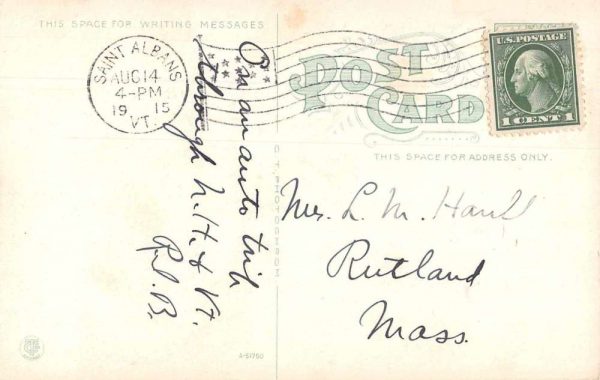 THIS SPACE FOR WRITING MESSAGES
SAINT ALBANS
AUG 14
4-PM
1915
VT.
POST
CARD
U.S. POSTAGE
1 CENT 1
THIS SPACE FOR ADDRESS ONLY.
On an auto trip
through N.H. & Vt.
R.J.B.
Mrs. L. M.
Rutland
Mass.
A-51750